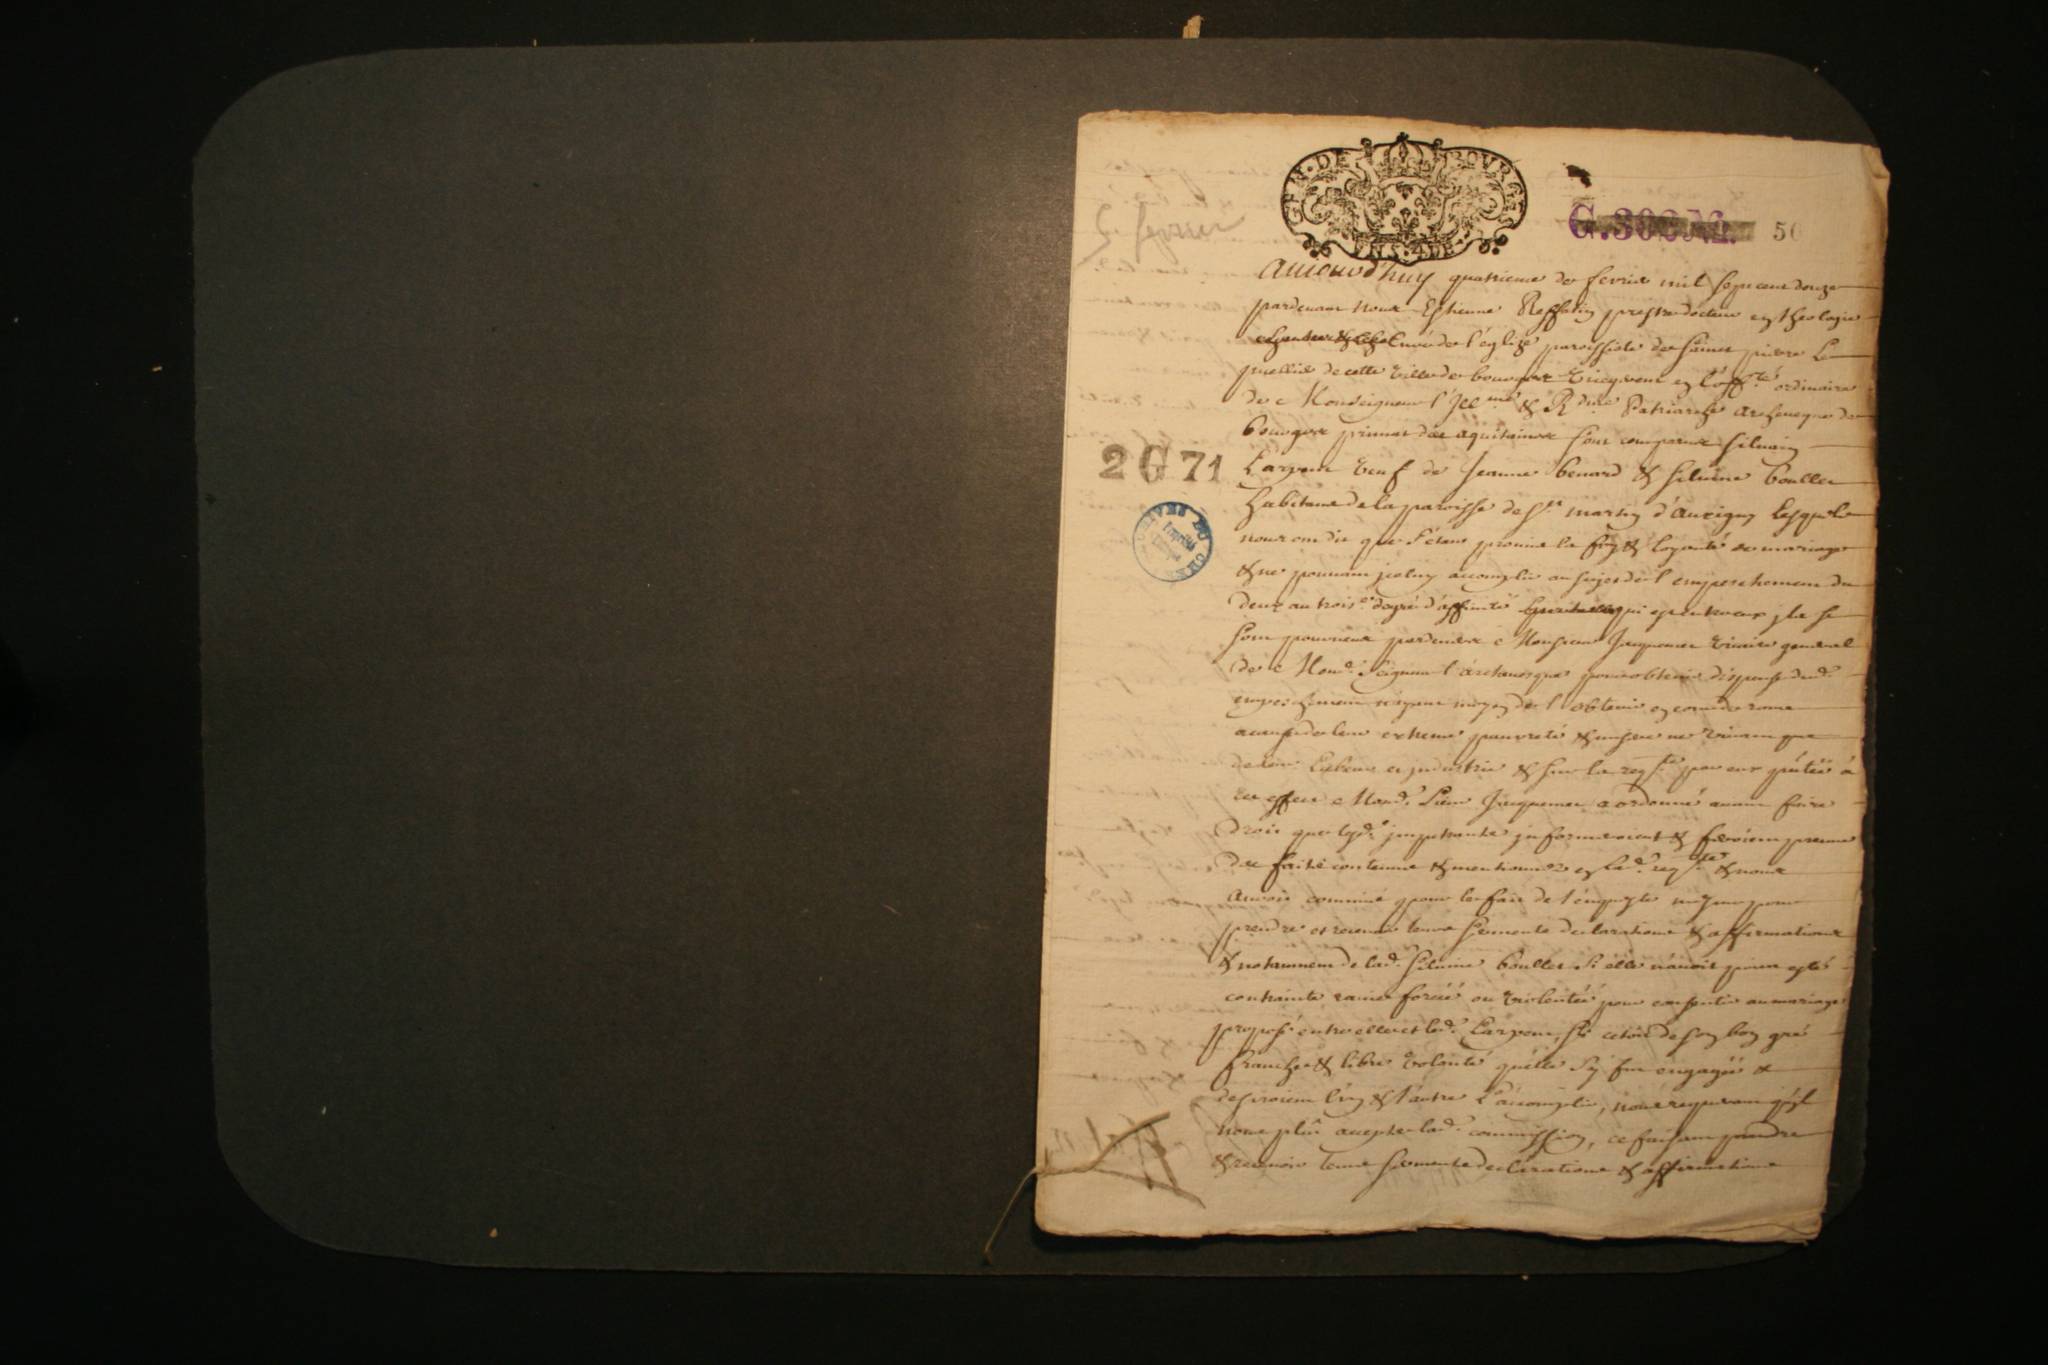 GEN. DE BOURGES
UN S. 4 DE
G.300 N. 50
Aujourd'huy quatrieme de fevrier mil sept cent douze
pardevant nous Estienne Reffatin prestre docteur en theologie
Curé de l'église paroissiale de Sainct pierre Le
puellier de cette ville de bourges vicegerent en l'off.té ordinaire
de Monseigneur l'Ill.me & R.dme Patriarche archevesque de
bourges primat des aquitaines sont comparus silvain
Larpent veuf de Jeanne benard & silvine boullet
2 G 71
habitans de la paroisse de St martin d'Auxigny Lesquels
nous ont dit que s'étans promis la foy & loyauté de mariage
& ne pouvant iceluy accomplir au sujet de l'empeschement du
deux au trois.e degré d'affinité qui est entr'eux ils se
sont pourvus pardevers Monsieur Jacquemet vicaire general
de Mond. Seigneur l'archevesque pour obtenir dispense dud.
empeschement n'ayant moyen de l'obtenir en cour de rome
a cause de leur extreme pauvreté & misere ne vivant que
de leur Labeur et industrie & sur la req.te par eux p'ntée à
cet effet Mond. Sieur Jacquemet a ordonné avant faire
droit que lesd. impetrants informeroient & feroient preuve
des faits contenus & mentionnés en lad. req.te & nous
auroit commis pour le fait de l'enqueste mesme pour
prendre et recevoir leurs serments declarations & affirmations
& notamment de lad. silvine boullet si elle n'avoit point esté
contrainte ravie forcée ou violentée pour consentir au mariage
proposé entre elle et led. Larpent, si c'étoit de son bon gré
franche & libre volonté qu'elle s'y fut engagée &
desiroient l'un & l'autre l'accomplir, nous requerant qu'il
nous plût accepter lad. commission, ce faisant prendre
& recevoir leurs serments declarations & affirmations